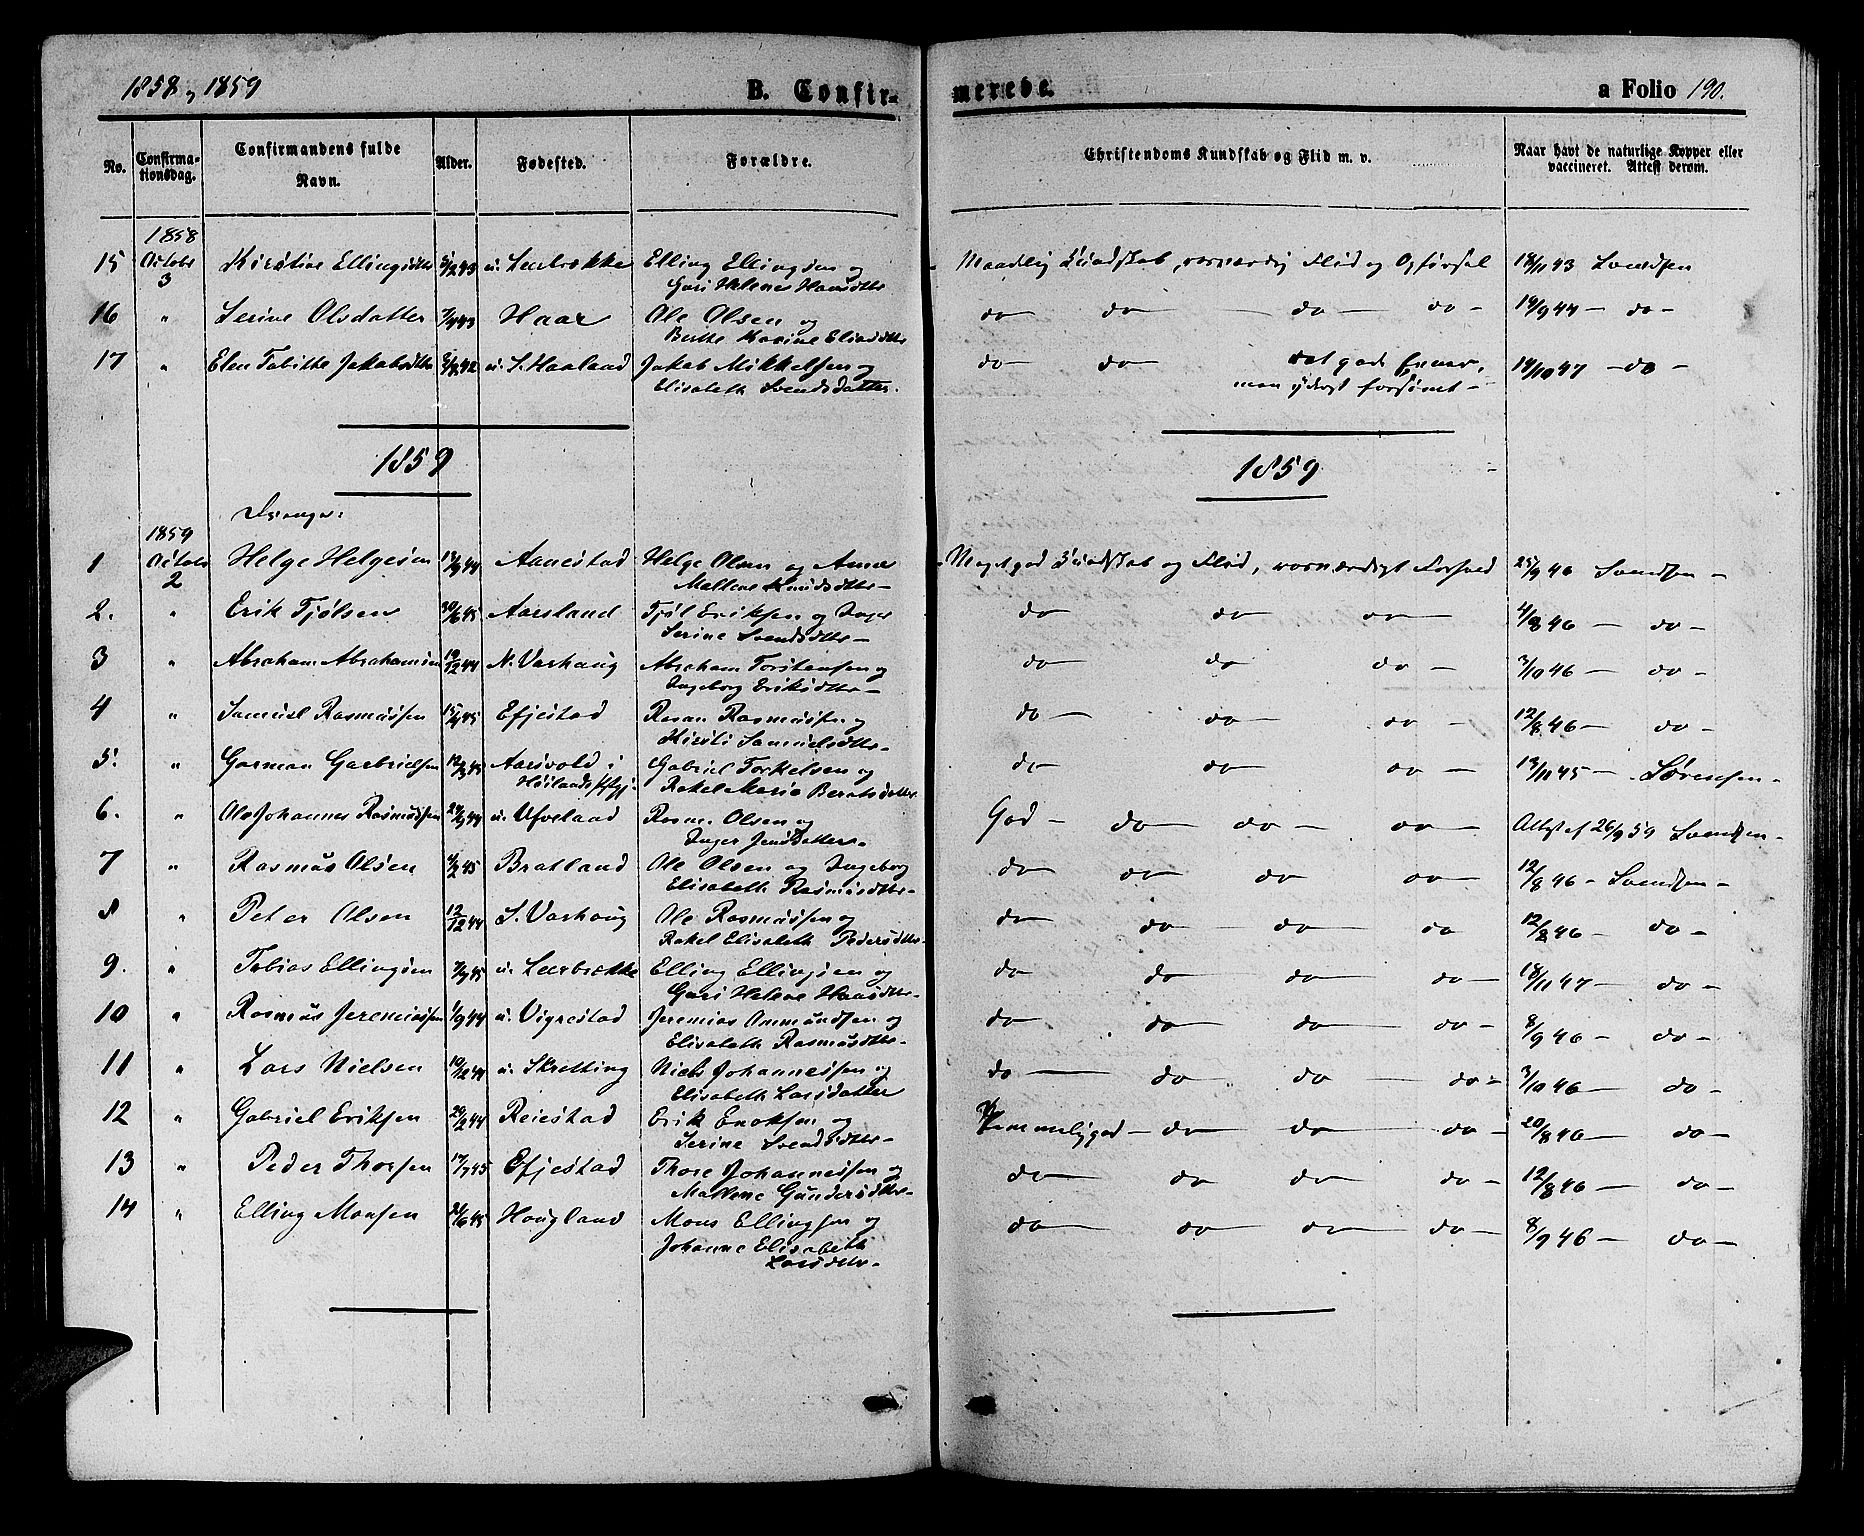 1858, 1859
B. Confir-
merede.
a Folio 190.
No.
Confirma-
tionsdag.
Confirmandens fulde
Navn.
Alder.
Fødested.
Forældre.
Christendoms Kundskab og Flid m. v.
Naar havt de naturlige Kopper eller
vaccineret. Attest derom.
1858
15 Octobr 3 Kirstine Ellingsdtr u. Leerbrekke Elling Ellingsen og Maadelig Kundskab, rosværdig Flid og Opførsel 18/11 43 Svendsen
Guri Helene Hansdtr
16 " Serine Olsdatter 7/4 43 Haar Ole Olsen og do do do do - 19/9 44 - do -
Berthe Karine Eliasdtr
17 " Elen Tabitha Jakobsdtr u. S. Haaland Jakob Mikkelsen og do do 14/10 47 - do
Elisabeth Svendsdatter. men yderst forsømt -
1859
1859
Drenge:
1859
1 Octobr 2 Helge Helgesen 13/9 44 Aanestad Helge Olsen og Anne Meget god Kundskab og Flid, rosværdigt Forhold 25/9 46 Svendsen -
Mallene Knudsdtr -
2. " Erik Tjølsen 30/6 45 Aarsland Tjøl Eriksen og Inger do do do - 4/8 46 - do -
Serine Svendsdtr -
3 " Abraham Abrahamsen 19/12 44 N. Varhaug Abraham Torstensen og do do do - 3/10 46 - do -
Ingeborg Eriksdtr -
4 " Samuel Rasmussen 15/4 45 Efjestad Rasm. Rasmussen og do - do - do - 12/8 46 - do -
Kirsti Samuelsdtr -
5. " Gorman Gabrielsen 12/3 45 Aarsvold i Gabriel Torkelsen og do do - do - 19/11 45 - Sørensen -
Høilands Prgj. Rakel Maria Berntsdtr
6. " Ole Johannes Rasmussen 24/9 44 u. Ufveland Rasm. Olsen og God - do - do - do - Attest af 26/9 59 Svendsen -
Inger Jensdatter.
7 " Rasmus Olsen 4/2 45 Bratland Ole Olsen og Ingeborg do do do do - 12/8 46 - Svendsen -
Elisabeth Rasmusdtr -
8 " Peter Olsen 12/12 44 S. Varhaug Ole Rasmussen og do do - do - do 12/8 46 - do -
Rakel Elisabeth Pedersdtr -
9. " Tobias Ellingsen 7/9 45 u. Leerbrekke Elling Ellingsen og do do do do - 18/11 47 - do -
Guri Helene Hansdtr -
10 " Rasmus Jeremiassen 1/9 44 u. Vigrestad Jeremias Ommundsen og do do do do - 8/9 46 - do -
Elisabeth Rasmusdtr -
11 " Lars Nielsen 10/2 44 u. Skretting Niels Johannessen og do - do do - do - 3/10 46 - do -
Elisabeth Larsdatter
12 " Gabriel Eriksen 29/2 44 Reiestad Erik Enoksen og Temmelig god - do - do - do - 20/8 46 - do -
Serine Svendsdtr -
13 " Peder Thorsen 17/7 45 Efjestad Thore Johannessen og do - do do - do - 12/8 46 - do -
Mallene Gundersdtr -
14 " Elling Monsen 24/6 45 Haugland Mons Ellingsen og do - do do do - 8/9 46 - do -
Johanne Elisabeth
Larsdtr -